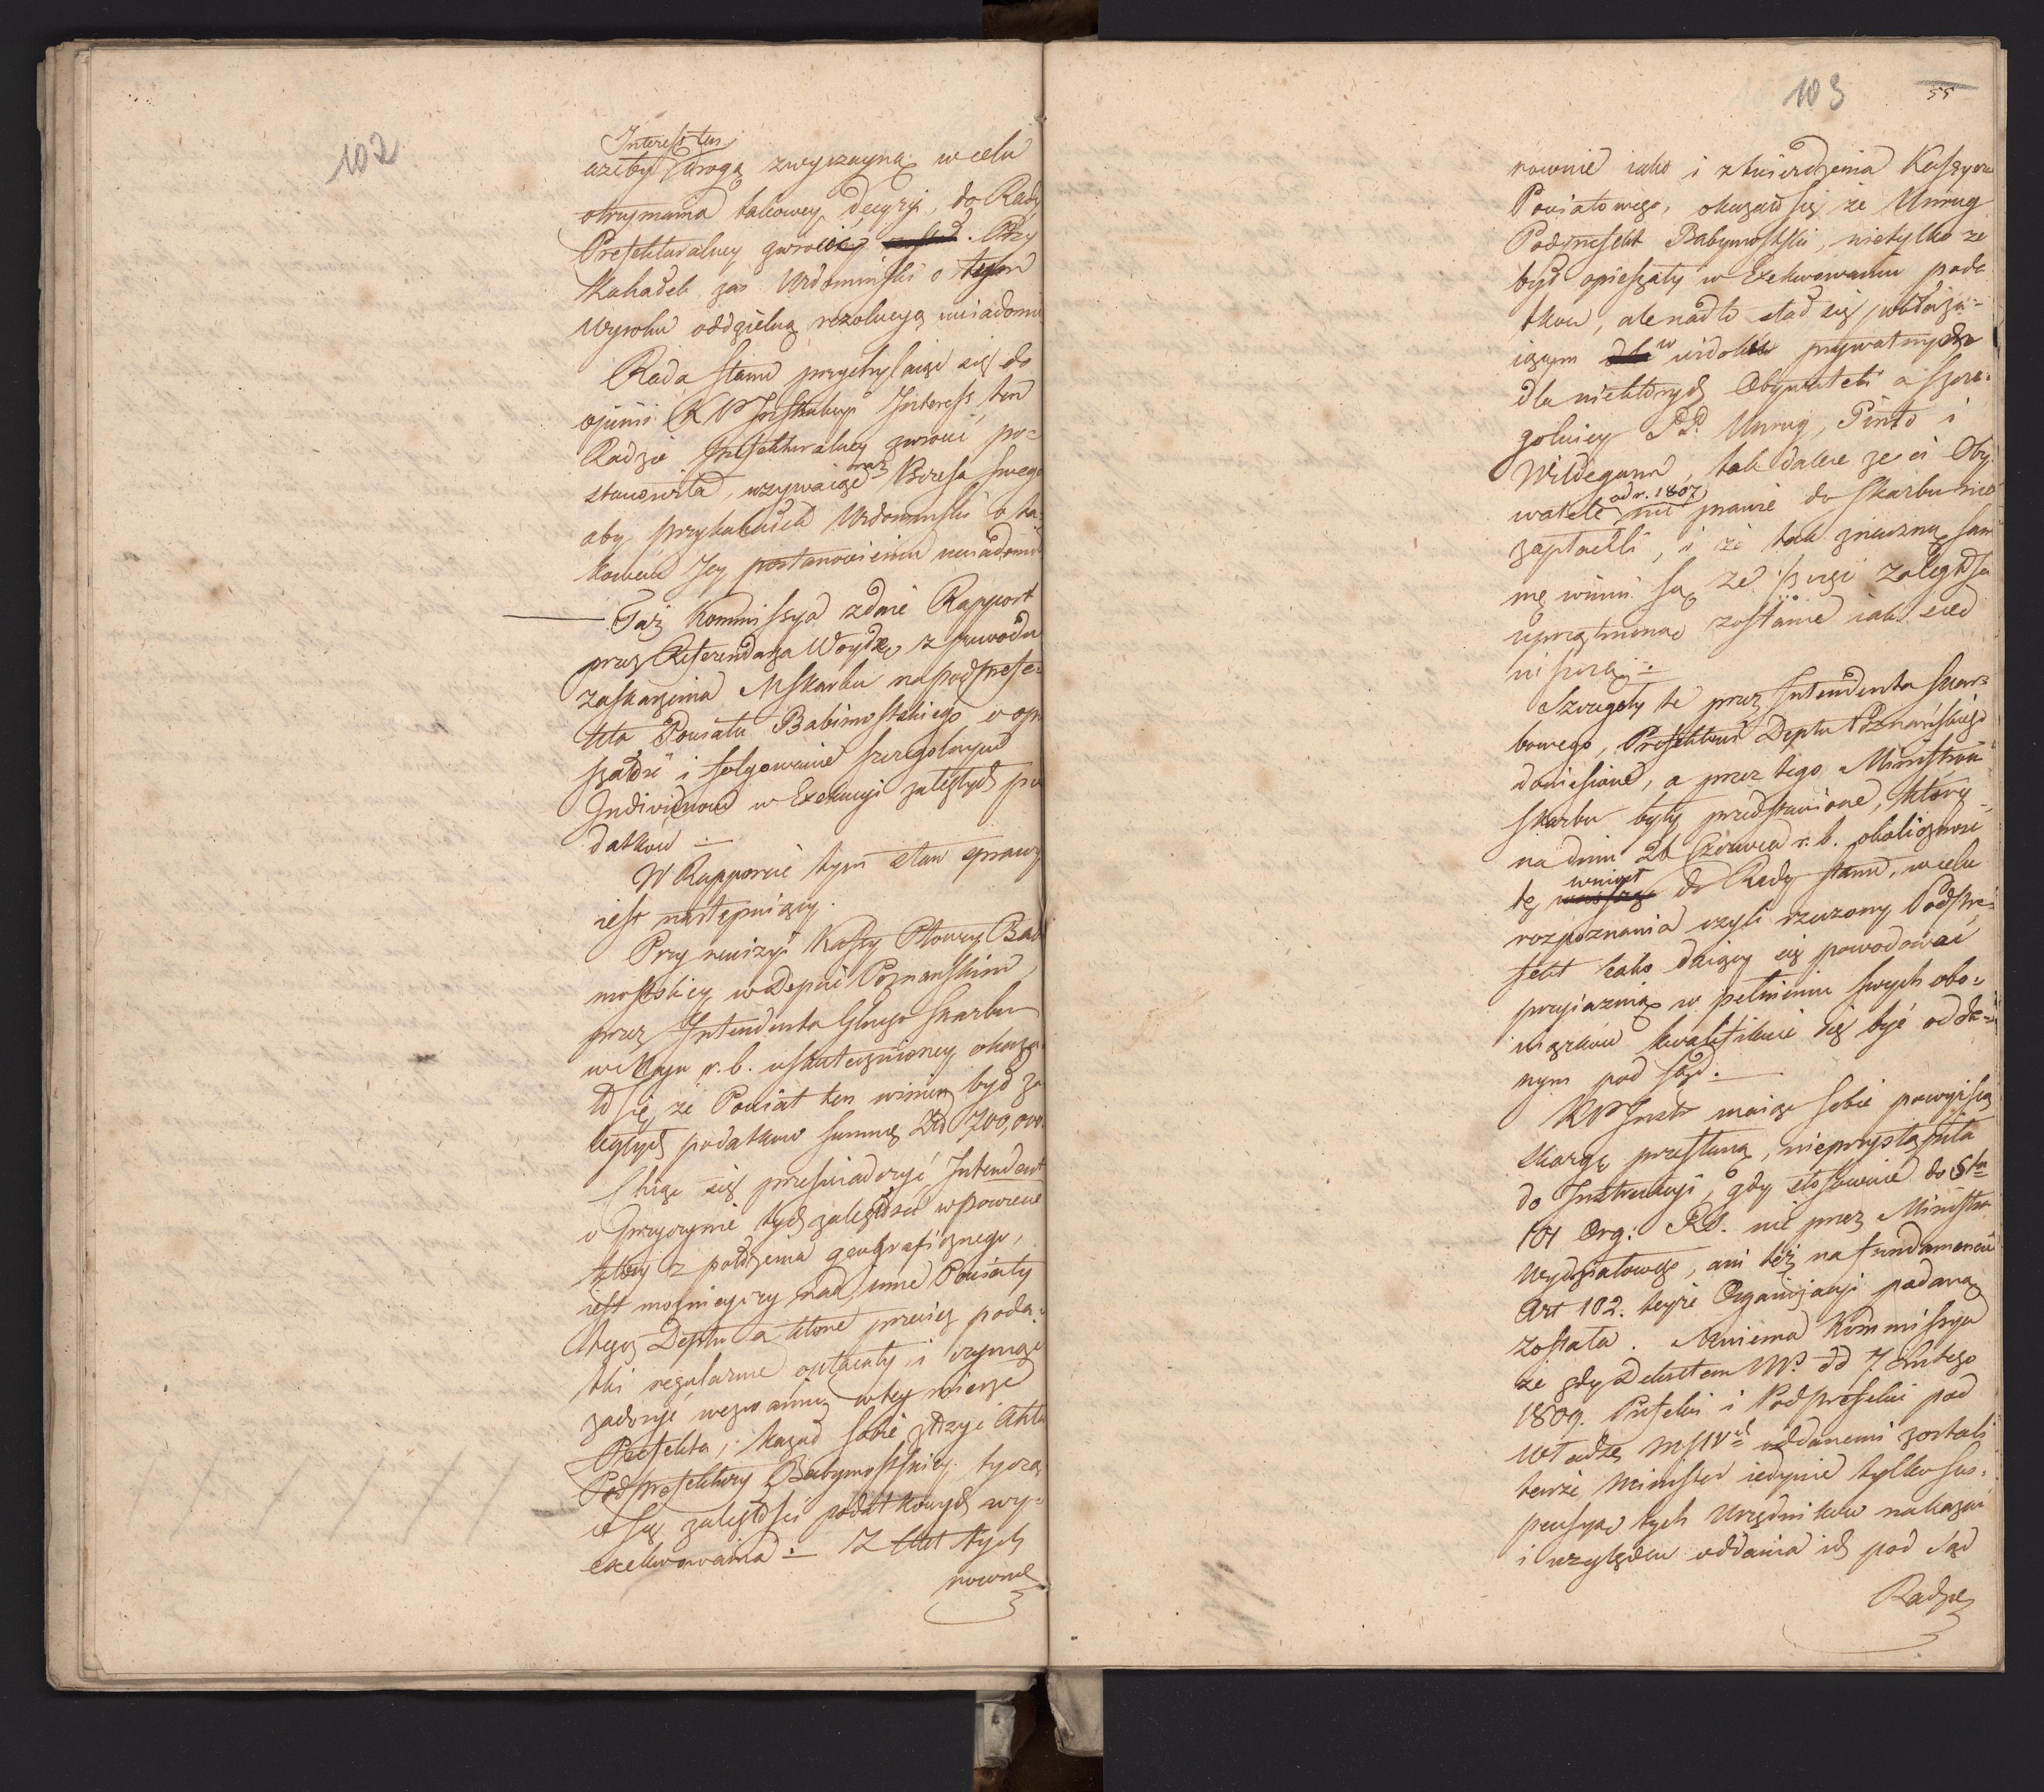 102
Interess ten
ażeby drogą zwyczayną w celu
otrzymania takowey decyzyi, do Rady
Prefekturalney zwrócić. Przy
kahałek zaś Wrdominski o tym
Wyroku oddzielną rezolucyą uwiadomi
Rada Stanu przychylaiąc się do
opinii K P Instrukcyi Interess ten
Radzie Prefekturalney zwrócić po-
stanowiła, wzywaiąc oraz Prezesa swego
aby przykahałek Wrdominski o ta-
kowem Jey postanowieniu uwiadomił
Taż Kommissya zdaie Rapport
przez Referendarza Woydę z powodu
zaskarzenia M Skarbu na podprefe-
kta Powiatu Babimostskiego o opie
szałość i folgowanie szczegolnym
Individuom w Exekucyi zaległych po
datkow.
W Rapporcie tym stan sprawy
iest następuiący.
Przy rewizyi Kassy Ptowey Babi
mostskiey w Depcie Poznanskim,
przez Intendenta Glnego Skarbu
w Maju r. b. uskutecznioney okaza
ło się, że Powiat ten winien był za
ległych podatkow summę Zł 700,000.
Chcąc się przeświadczyć Intendent
o przyczynie tych zaległości w powiecie
ktory z położenia geograficznego,
iest mozniejszy nad inne Powiaty
tegoż Deptu a ktore przecież poda-
tki regularnie opłacały, i czyniąc
zadosyć wezwaniu w tey mierze
Prefekta, kazał sobie złożyć Akta
Podprefektury Babymostskiey tyczą
ce się zaległości podatkowych wy-
exekwowania. Z Akt tych
rownie
103
55
rownie iako i z twierdzenia Kassyera
Powiatowego, okazało się że Unrug
Podprefekt Babymostski, nietylko że
był opieszały w Exekwowaniu poda
tkow, ale nadto stał się pobłaża-
iącym w widokach prywatnych
dla niektorych Obywateli a szcze-
golniey PP. Unrug, Pinto i
Wildegans, tak dalece że ci Oby-
watele od r. 1807 prawie do skarbu nie
zapłacili, i że tak znaczną sum
mę winni są, że
uprzątnioną zostanie iak

Szczegoły te przez Intendenta skar-
bowego, Prefektowi Deptu Poznańskiego
doniesione, a przez tego Ministrowi
Skarbu były przedstawione, ktory
na dniu 26 Czerwca r. b. okoliczność
tę wniosł do Rady Stanu, w celu
rozpoznania czyli rzeczony Podpre-
fekt iako daiący się powodować
przyiaznią w pełnieniu swych obo-
wiązkow kwalifikuie się być odda-
nym pod sąd.
KP Instr maiąc sobie powyższą
skargę przesłaną, nieprzystąpiła
do Instrukcyi, gdy stosownie do Stu
101 Org: RS. nie przez Ministra
Wydziałowego, ani też na fundamencie
Art 102. teyże Organizacyi podaną
została. Mniema Kommissya
że gdy Dekretem NP. dd 7 Lutego
1809. Prefekci i Podprefekci pod
władzę MSW oddanemi zostali
tenże Minister iedynie tylko sus-
pensyą tych Urzędnikow nakazać
i względem oddania ich pod Sąd
Radzie